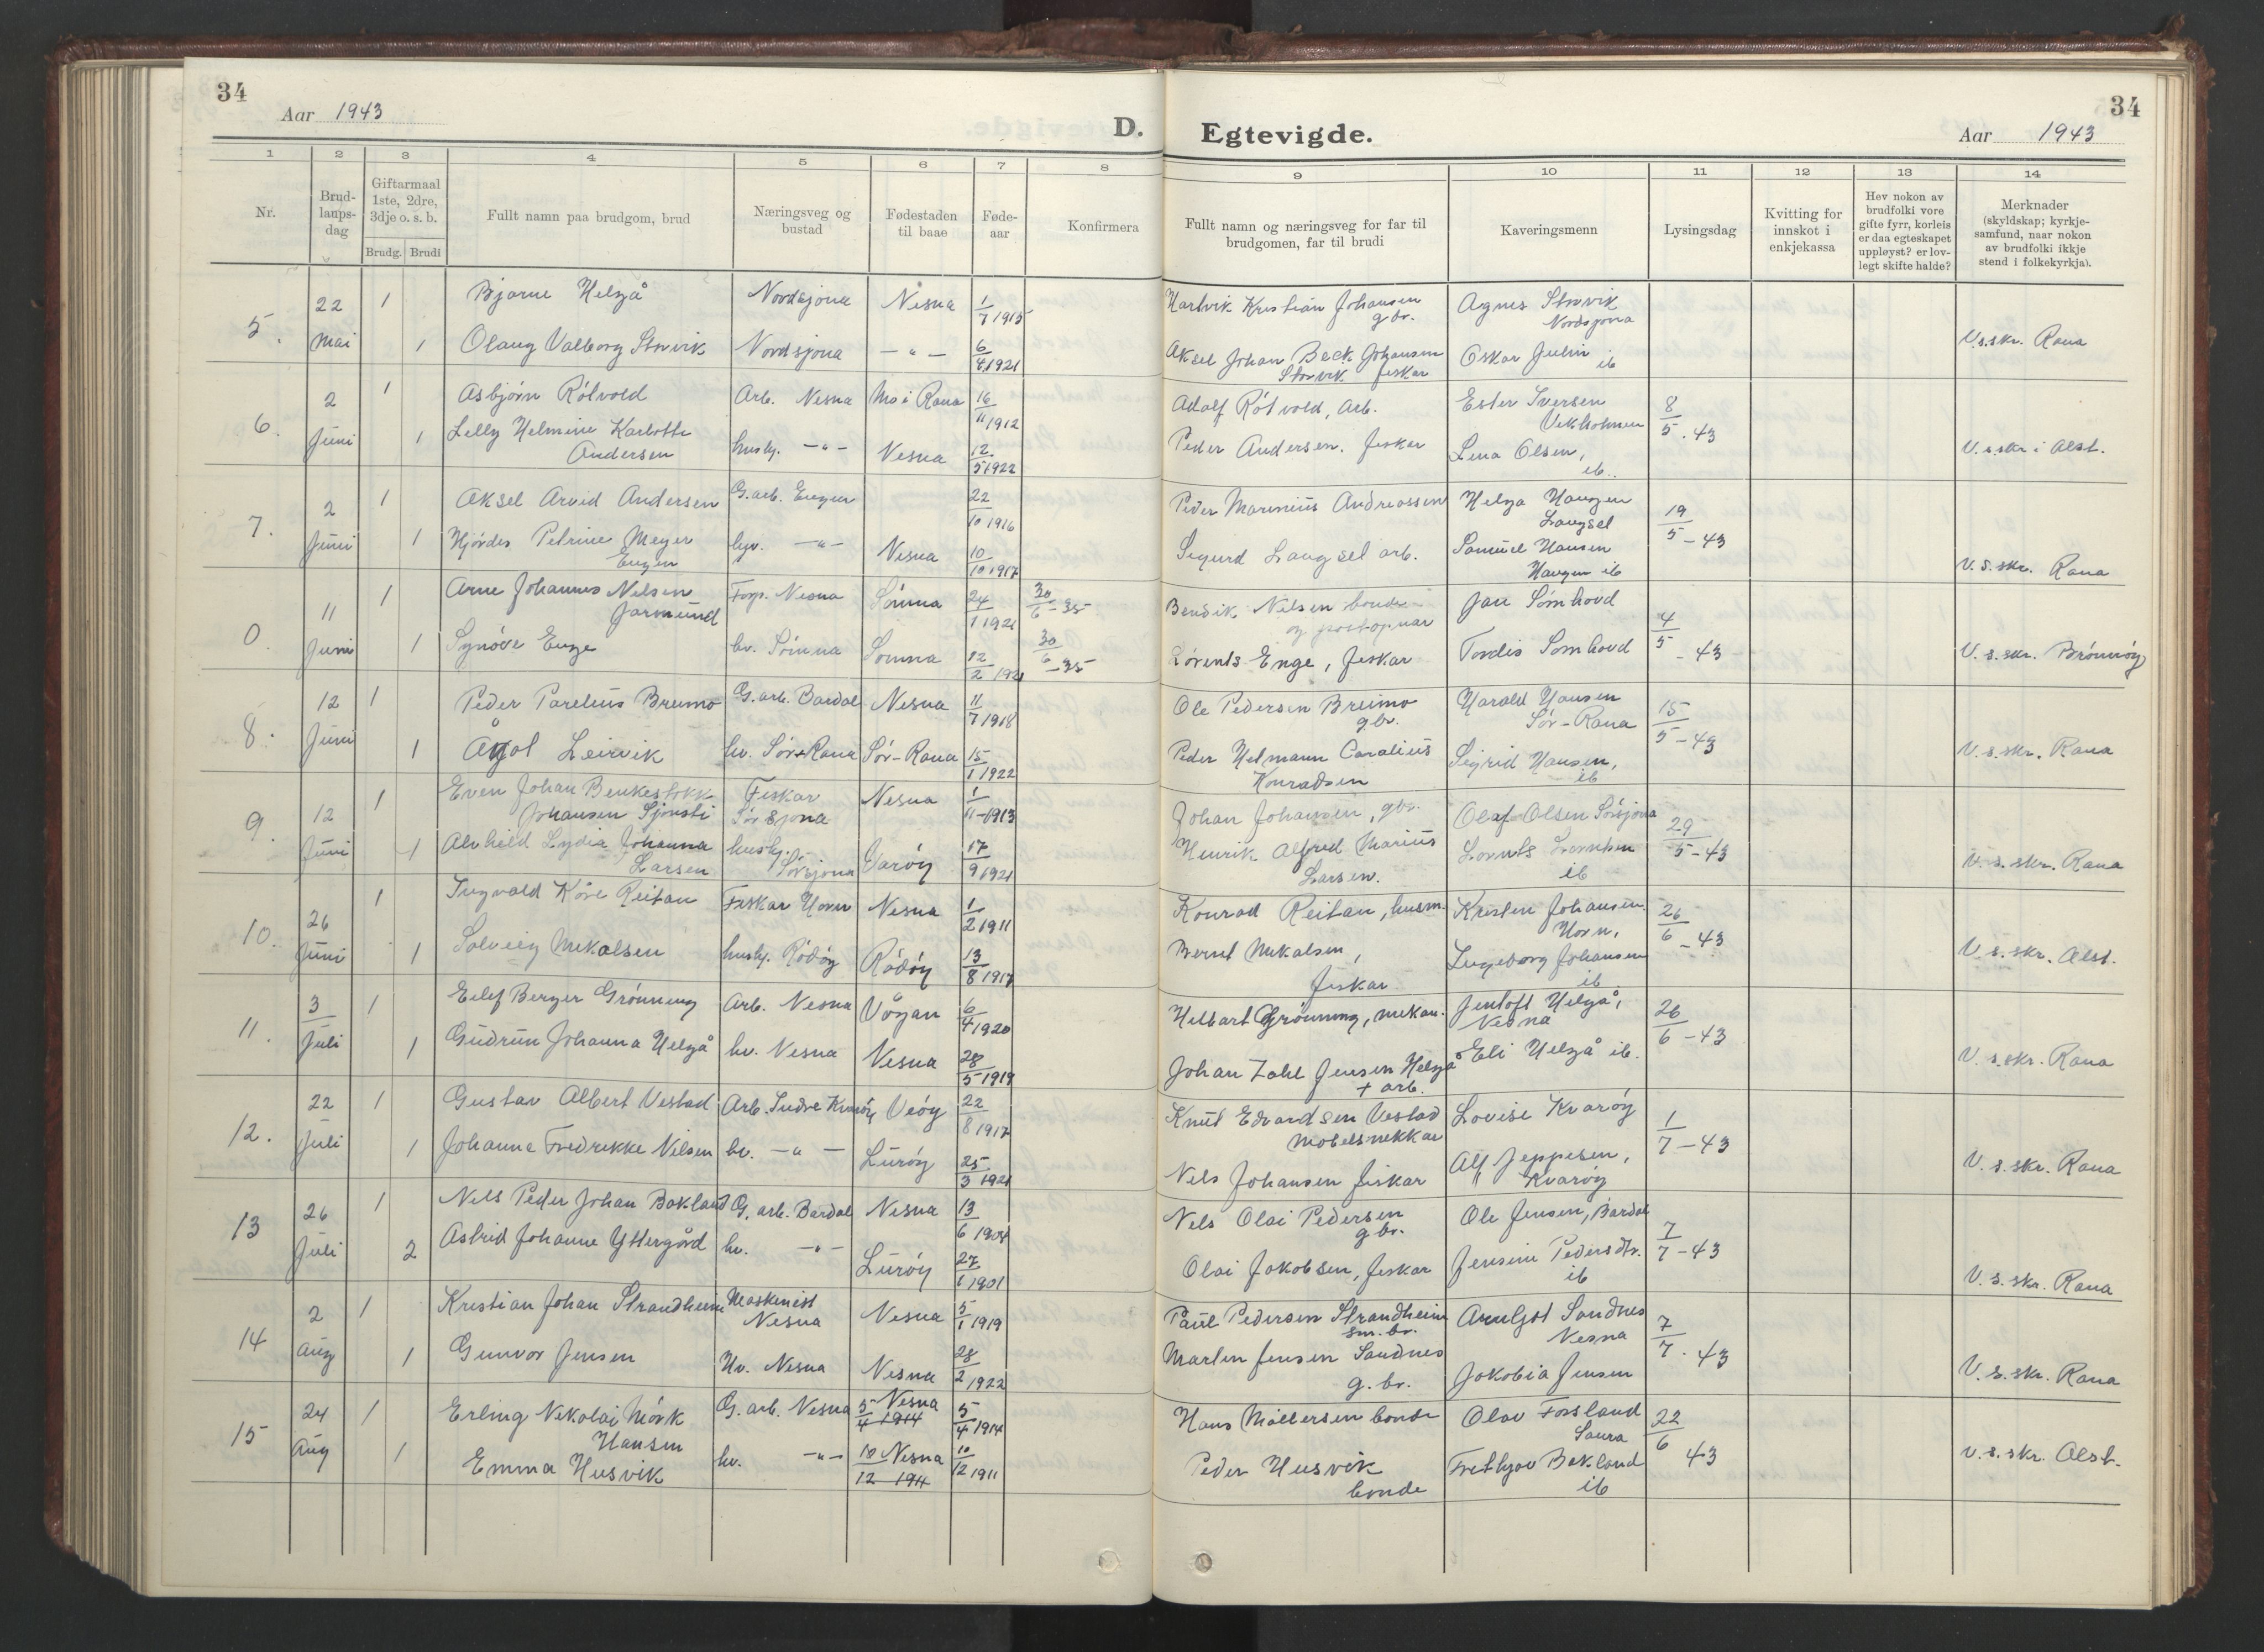 34
Aar 1943
D.
1 2 3 4 5 6 7 8
Nr.
Brud-
laups-
dag
Giftarmaal
1ste, 2dre,
3dje o. s. b.
Brudg. Brudi
Fullt namn paa brudgom, brud
Næringsveg og
bustad
Fødestaden
til baae
Føde-
aar
Konfirmera
5. 22 Mai
1 Bjarne Helgå Nordsjona Nesna 1/7 1915
1 Olaug Valborg Storvik Nordsjona —"— 6/8 1921
6. 2 Juni
1 Asbjørn Rôtvold Arb. Nesna Mo i Rana 16/11 1912
1 Lelly Helmine Karlotte
Andersen husly. —"— Nesna 12/5 1922
7. 2 Juni
1 Aksel Arvid Andersen G.arb. Engen 22/10 1916
1 Hjørdis Petrine Meyer
Engen hv. —"— Nesna 10/10 1917
0. 11 Juni
1 Arne Johannes Nelsen
Jarmund Forp. Nesna Sømna 24/1 1921 30/6-35
1 Synøve Enge hv. Sømna Sømna 12/2 1921 30/6-35
8. 12 Juni
1 Peder Parelius Breimo G.arb. Bardal Nesna 11/7 1918
1 Ågot Leirvik hv. Sør-Rana Sør-Rana 15/1 1922
9. 12 Juni
1 Even Johan Benkestokk
Johansen Sjonsti Feskar
Sørsjona Nesna 1/11-1913
1 Alvhild Lydia Johanna
Larsen husly.
Sørsjona Værøy 17/9 1921
10. 26 Juni
1 Ingvald Kåre Reitan Feskar Horn Nesna 1/2 1911
1 Solveig Mikalsen husly. Rødøy Rødøy 13/8 1917
11. 3 Juli
1 Eilef Berger Grønning Arb. Nesna Vågan 6/4 1920
1 Gudrun Johanna Helgå hv. Nesna Nesna 28/5 1919
12. 22 Juli
1 Gustav Albert Vestad Arb. Indre Kvarøy Veøy 22/8 1917
1 Johanna Fredrekke Nilsen hv. —"— Lurøy 25/3 1921
13 26 Juli
1 Nels Peder Johan Bakland G. arb. Bardal Nesna 13/6 1904
2 Astrid Johanne Yttergård hv. —"— Lurøy 27/1 1901
14 2 Aug
1 Kristian Johan Strandheim Maskinist
Nesna Nesna 5/1 1919
1 Gunvor Jensen Hv. Nesna Nesna 28/2 1922
15 24 Aug
1 Erling Nikolai Mørk
Hansen G. arb. Nesna 5/4 1914 Nesna 5/4 1914
1 Emma Husvik hv. —"— 10/12 1911 Nesna 10/12 1911
34
Egtevigde.
Aar 1943
9 10 11 12 13 14
Fullt namn og næringsveg for far til
brudgomen, far til brudi
Kaveringsmenn
Lysingsdag
Kvitting for
innskot i
enkjekassa
Hev nokon av
brudfolki vore
gifte fyrr, korleis
er daa egteskapet
uppløyst? er lov-
legt skifte halde?
Merknader
(skyldskap; kyrkje-
samfund, naar nokon
av brudfolki ikkje
stend i folkekyrkja).
Hartvik Kristian Johansen
gbr. Agnes Storvik
Nordsjona
Aksel Johan Beck Johansen
Storvik feskar Oskar Julin
ib V.s.skr. Rana
Adolf Rôtvold, Arb. Ester Iversen
Vikholmen 8/5.43
Peder Andersen. feskar Lena Olsen,
ib. V.s.skr i Alst.
Peder Marinius Andreassen Helga Haugen
Langset 19/5-43
Sigurd Langset arb. Samuel Hansen
Haugen ib V.s.skr. Rana
Bendik Nilsen bonde
og postopnar Jan Sømhovd 4/5-43
Lorents Enge, feskar Tordis Somhovd V.s.skr. Brønnøy
Ole Pedersen Breimo
gbr. Harald Hansen
Sør-Rana 15/5-43
Peder Helmann Coralius
Konradsen Sigrid Hansen,
ib V.s.skr. Rana
Johan Johansen, gbr. Olaf Olsen Sørsjona 29/5-43
Henrik Alfred Marius
Larsen. Lornts Lorntsen
ib V.s.skr. Rana
Konrad Reitan, husm. Kristen Johansen
Horn, 26/6-43
Bernt Mikalsen,
feskar Ingeborg Johansen
ib V.s.skr. Alst.
Helbart Grønning, mekan. Jentoft Helgå,
Nesna 26/6-43
Johan Zahl Jensen Helgå
+ arb. Eli Helgå ib. V.s.skr. Rana
Knut Edvardsen Vestad
Møbelsnekkar Lovise Kvarøy 1/7-43
Nels Johansen feskar Alf Jeppesen,
Kvarøy V.s.skr. Rana
Nels Olai Pedersen
gbr. Ole Jensen, Bardal 7/7-43
Olai Jakobsen, feskar Jensine Pedersdtr.
ib V.s.skr. Rana
Paul Pedersen Strandheim
sm.br. Arnljot Sandnes
Nesna 7/7.43
Martin Jensen Sandnes
g.br. Jakobia Jensen V.s.skr. Rana
Hans Møllersen bonde Olav Forsland
Saura 22/6 43
Peder Husvik
bonde Frethjov Bakland
ib V.s.skr. Alst.